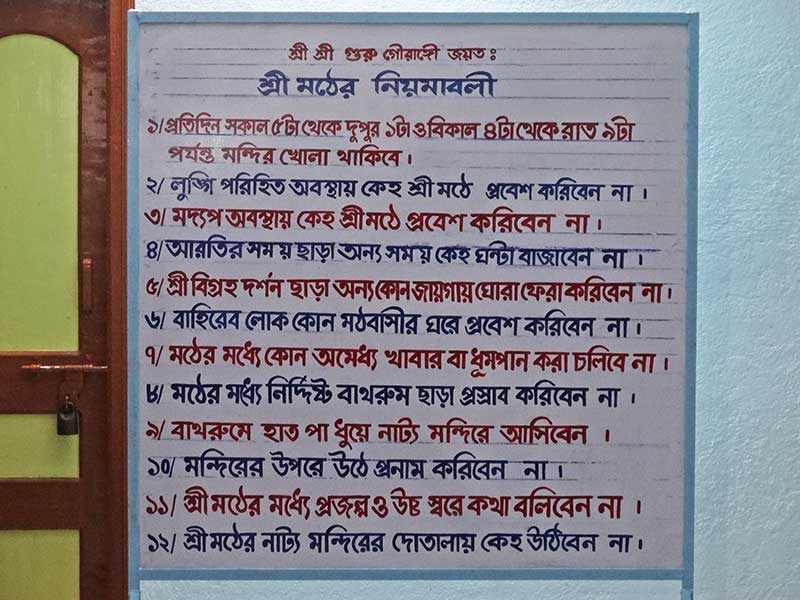 শ্রী শ্রী গুরু গৌরাঙ্গৌ জয়তঃ
শ্রী মঠের নিয়মাবলী
১/ প্রতিদিন সকাল ৫টা থেকে দুপুর ১টা ও বিকাল ৪টা থেকে রাত ৯টা
পর্যন্ত মন্দির খোলা থাকিবে।
২/ লুঙ্গি পরিহিত অবস্থায় কেহ শ্রী মঠে প্রবেশ করিবেন না।
৩/ মদ্যপ অবস্থায় কেহ শ্রীমঠে প্রবেশ করিবেন না।
৪/ আরতির সময় ছাড়া অন্য সময় কেহ ঘন্টা বাজাবেন না।
৫/ শ্রী বিগ্রহ দর্শন ছাড়া অন্য কোন জায়গায় ঘোরা ফেরা করিবেন না।
৬/ বাহিরেব লোক কোন মঠবাসীর ঘরে প্রবেশ করিবেন না।
৭/ মঠের মধ্যে কোন অমেধ্য খাবার বা ধূমপান করা চলিবে না।
৮/ মঠের মধ্যে নির্দ্দিষ্ট বাথরুম ছাড়া প্রস্রাব করিবেন না।
৯/ বাথরুমে হাত পা ধুয়ে নাট্য মন্দিরে আসিবেন।
১০/ মন্দিরের উপরে উঠে প্রনাম করিবেন না।
১১/ শ্রী মঠের মধ্যে প্রজল্প ও উচ্চ স্বরে কথা বলিবেন না।
১২/ শ্রী মঠের নাট্য মন্দিরের দোতালায় কেহ উঠিবেন না।